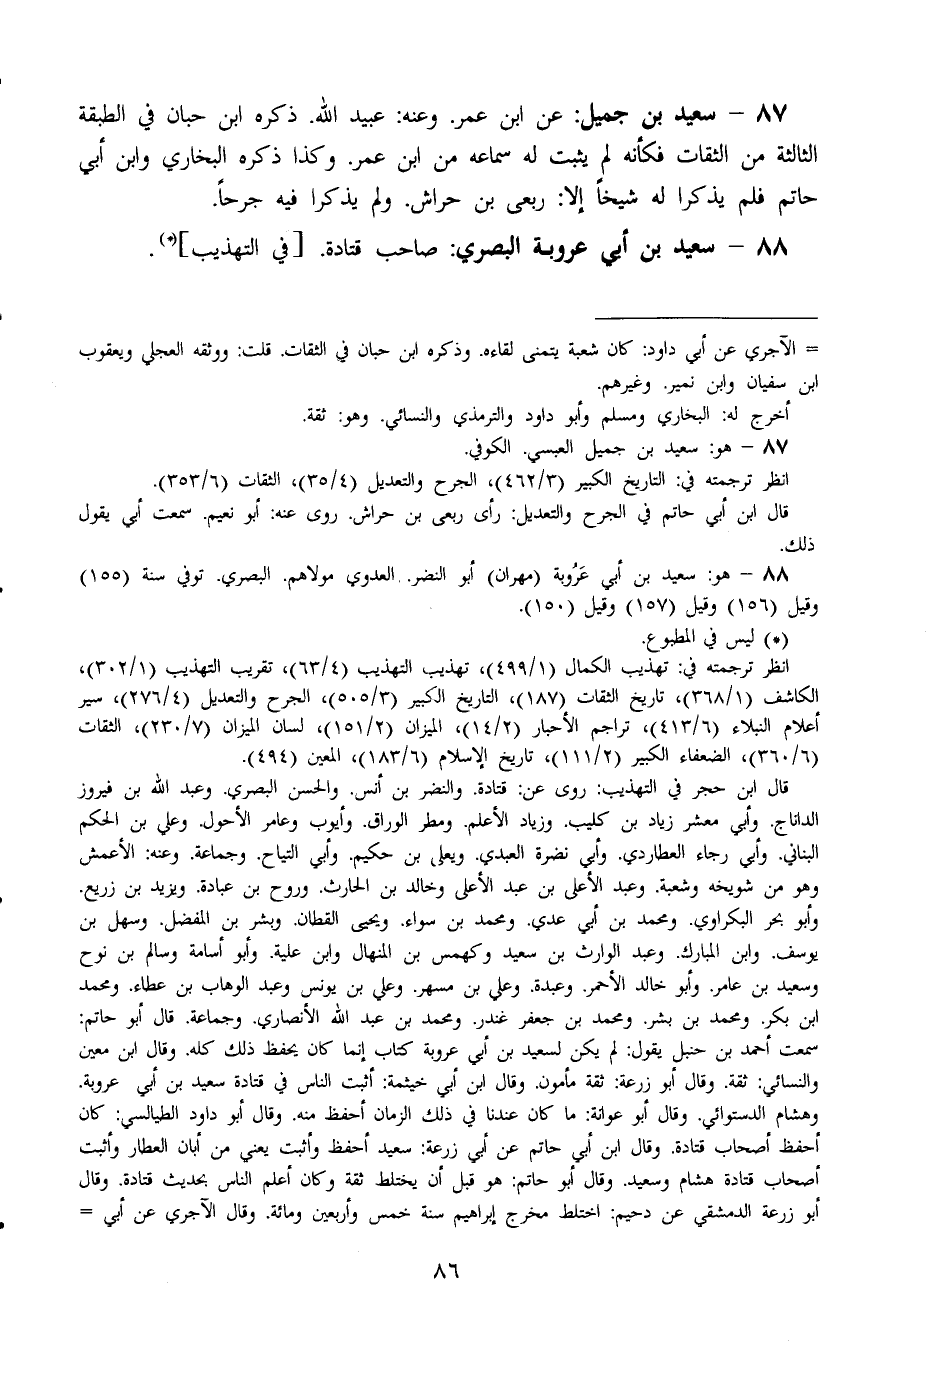 ٨٧ - سعيد بن جميل: عن ابن عمر. وعنه: عبيد الله. ذكره ابن حبان في الطبقة
الثالثة من الثقات فكأنه لم يثبت له سماعه من ابن عمر. وكذا ذكره البخاري وابن أبي
حاتم فلم يذكرا له شيخاً إلا: ربعى بن حراش. ولم يذكرا فيه جرحاً.
٨٨ - سعيد بن أبي عروبة البصري: صاحب قتادة. [في التهذيب](*).
= الآجري عن أبي داود: كان شعبة يتمنى لقاءه. وذكره ابن حبان في الثقات. قلت: ووثقه العجلي ويعقوب
ابن سفيان وابن نمير. وغيرهم.
أخرج له: البخاري ومسلم وأبو داود والترمذي والنسائي. وهو: ثقة.
٨٧ - هو: سعيد بن جميل العبسي. الكوفي.
انظر ترجمته في: التاريخ الكبير (٤٦٢/٣)، الجرح والتعديل (٣٥/٤)، الثقات (٣٥٣/٦).
قال ابن أبي حاتم في الجرح والتعديل: رأى ربعى بن حراش. روى عنه: أبو نعيم. سمعت أبي يقول
ذلك.
٨٨ - هو: سعيد بن أبي عَرُوبة (مهران) أبو النضر. العدوي مولاهم. البصري. توفي سنة (١٥٥)
وقيل (١٥٦) وقيل (١٥٧) وقيل (١٥٠).
(*) ليس في المطبوع.
انظر ترجمته في: تهذيب الكمال (٤٩٩/١)، تهذيب التهذيب (٦٣/٤)، تقريب التهذيب (٣٠٢/١)،
الكاشف (٣٦٨/١)، تاريخ الثقات (١٨٧)، التاريخ الكبير (٥٠٥/٣)، الجرح والتعديل (٢٧٦/٤)، سير
أعلام النبلاء (٤١٣/٦)، تراجم الأحبار (١٤/٢)، الميزان (١٥١/٢)، لسان الميزان (٢٣٠/٧)، الثقات
(٣٦٠/٦)، الضعفاء الكبير (١١١/٢)، تاريخ الإسلام (١٨٣/٦)، المعين (٤٩٤).
قال ابن حجر في التهذيب: روى عن: قتادة. والنضر بن أنس. والحسن البصري. وعبد الله بن فيروز
الداناج. وأبي معشر زياد بن كليب. وزياد الأعلم. ومطر الوراق. وأيوب وعامر الأحول. وعلي بن الحكم
البناني. وأبي رجاء العطاردي. وأبي نضرة العبدي. ويعلى بن حكيم. وأبي التياح. وجماعة. وعنه: الأعمش
وهو من شويخه وشعبة. وعبد الأعلى بن عبد الأعلى وخالد بن الحارث. وروح بن عبادة. ويزيد بن زريع.
وأبو بحر البكراوي. ومحمد بن أبي عدي. ومحمد بن سواء. ويحيى القطان. وبشر بن المفضل. وسهل بن
يوسف. وابن المبارك. وعبد الوارث بن سعيد وكهمس بن المنهال وابن علية. وأبو أسامة وسالم بن نوح
وسعيد بن عامر. وأبو خالد الأحمر. وعبدة. وعلي بن مسهر. وعلي بن يونس وعبد الوهاب بن عطاء. ومحمد
ابن بكر. ومحمد بن بشر. ومحمد بن جعفر غندر. ومحمد بن عبد الله الأنصاري. وجماعة. قال أبو حاتم:
سمعت أحمد بن حنبل يقول: لم يكن لسعيد بن أبي عروبة كتاب إنما كان يحفظ ذلك كله. وقال ابن معين
والنسائي: ثقة. وقال أبو زرعة: ثقة مأمون. وقال ابن أبي خيثمة: أثبت الناس في قتادة سعيد بن أبي عروبة.
وهشام الدستوائي. وقال أبو عوانة: ما كان عندنا في ذلك الزمان أحفظ منه. وقال أبو داود الطيالسي: كان
أحفظ أصحاب قتادة. وقال ابن أبي حاتم عن أبي زرعة: سعيد أحفظ وأثبت يعني من أبان العطار وأثبت
أصحاب قتادة هشام وسعيد. وقال أبو حاتم: هو قبل أن يختلط ثقة وكان أعلم الناس بحديث قتادة. وقال
أبو زرعة الدمشقي عن دحيم: اختلط مخرج إبراهيم سنة خمس وأربعين ومائة. وقال الآجري عن أبي =
٨٦